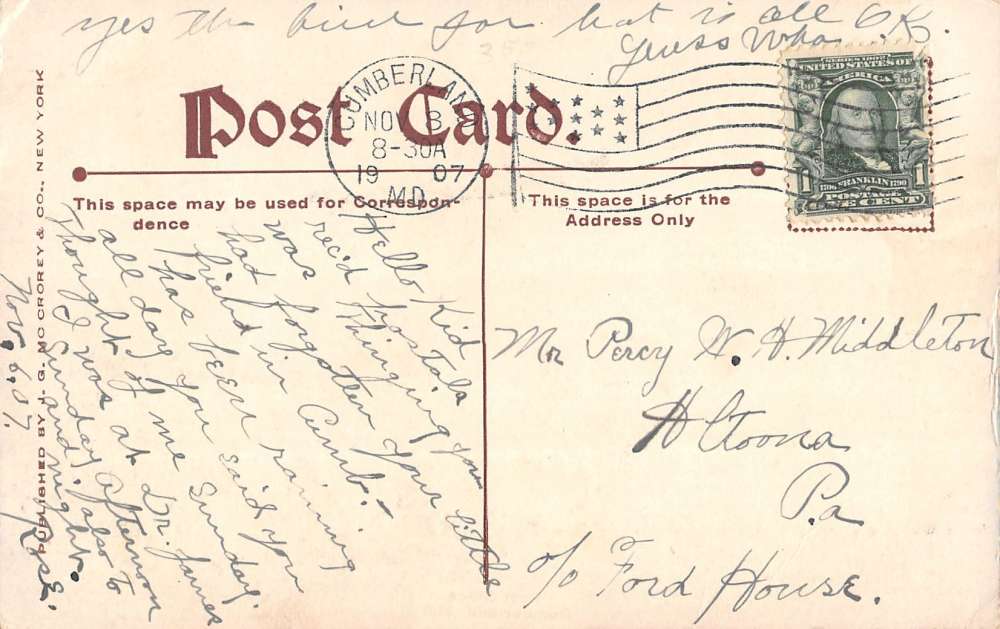 yes the kind for that is all O.K.
Guess Who
Post Card.
CUMBERLAND
NOV 8
8-30A
19 07
MD.
SERIES 1902
UNITED STATES OF
AMERICA
1
1706 FRANKLIN 1790
1
ONE CENT
This space may be used for Correspon-
dence
This space is for the
Address Only
Hello Kid
rec'd postals
Thinging you
was
had forgotten your little
friend in Cumb.
has been raining
all day you said you
Thought of me Sunday.
I was at Dr. James
Sunday afternoon
and also to
night.
Rose.
Nov. 6. 07.
PUBLISHED BY J. G. MC CROREY & CO., NEW YORK
Mr Percy W. H. Middleton
Altoona
Pa
c/o Ford House.